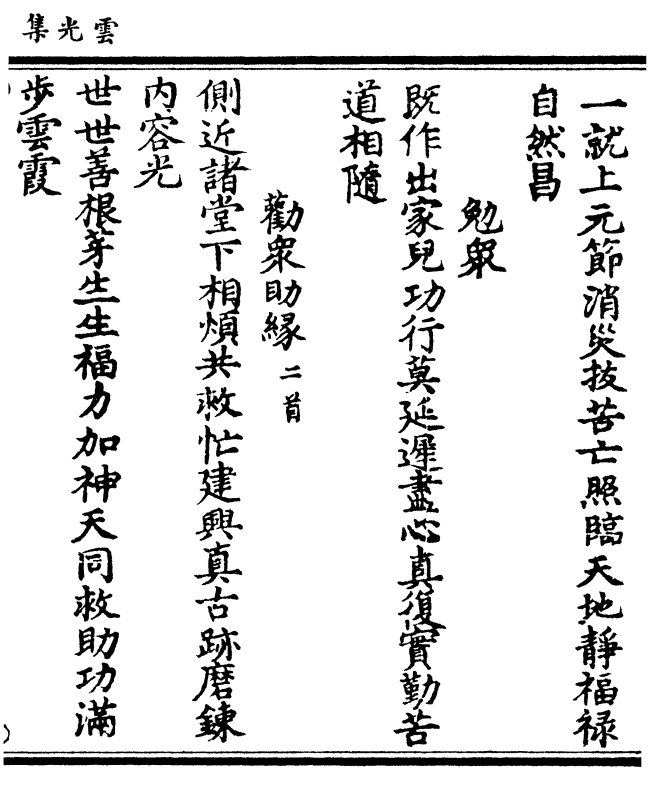 雲光集
一就上元節消災拔苦亡照臨天地靜福祿
自然昌
勉眾
既作出家兒功行莫延遲盡心真復實勤苦
道相隨
勸衆助緣二首
側近諸堂下相煩共救忙建興真古跡磨鍊
内容光
世世善根芽生生福力加神天同救助功滿
步雲霞